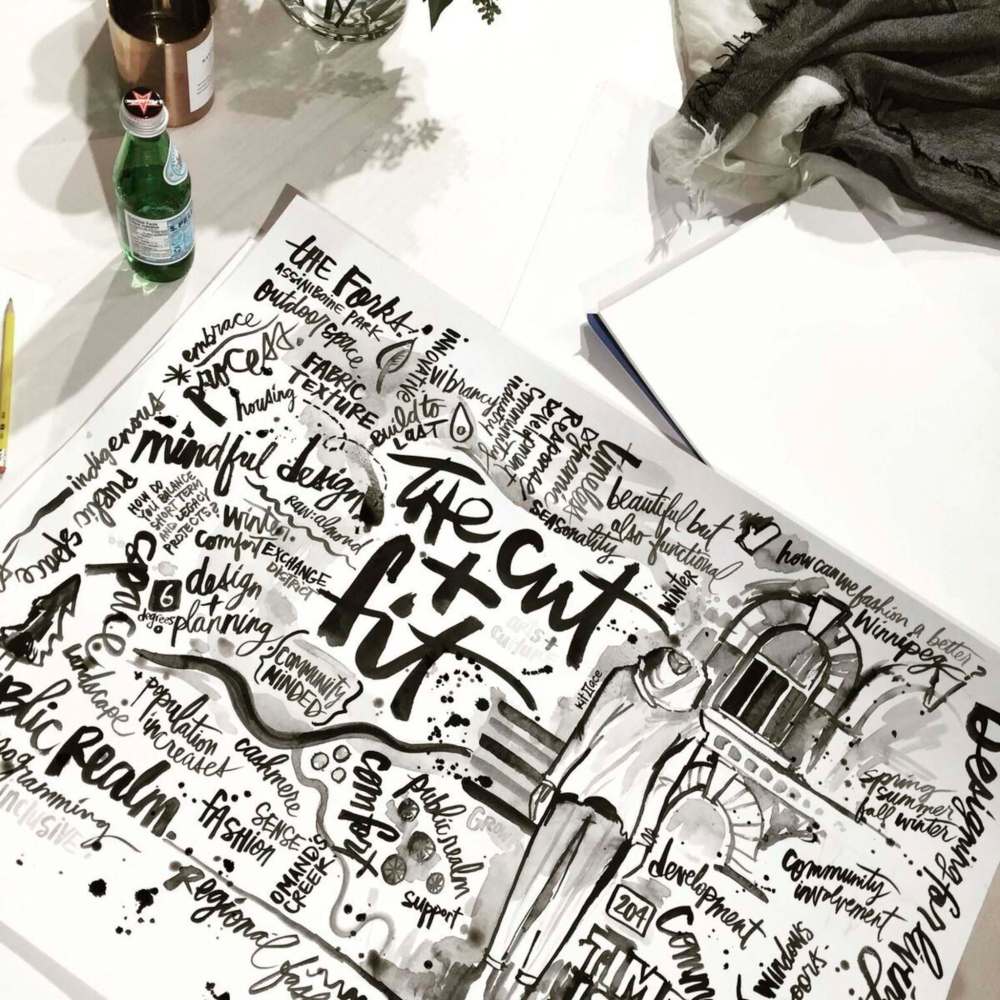 S.PE
the Forks.
ASSiNiBOiNE PARK
Outdoor space
embrace
*process.
housing
FABRIC
TEXTURE
BUILD to
LAST
INNOVATIVE
vibrancy
industry
Community
Development
Responsive
Dynamic
timeless
SEASONALITY.
indigenous
public
spaces
mindful design
HOW DO
YOU BALANCE
SHORT TERM
AND LEGACY
PROJECTS?
raw:almond
winter
comfort
EXCHANGE
DISTRICT
THE cut
+
fit
beautiful but
also functional
winter
how can we fashion a better
Winnipeg?
space
6
degrees
design
+
planning
{COMMUNITY
MINDED}
arts +
culture
Kit+ace
landscape
population
increases
cashmere
PUBLIC REALM.
programming
INCLUSIVE.
fASHION
SENSE
OMAND'S
CREEK
comfort
public realm
support
GROW
Regional
spring
summer
fall winter
Designing for living
community
involvement
development
204
Comm
windows